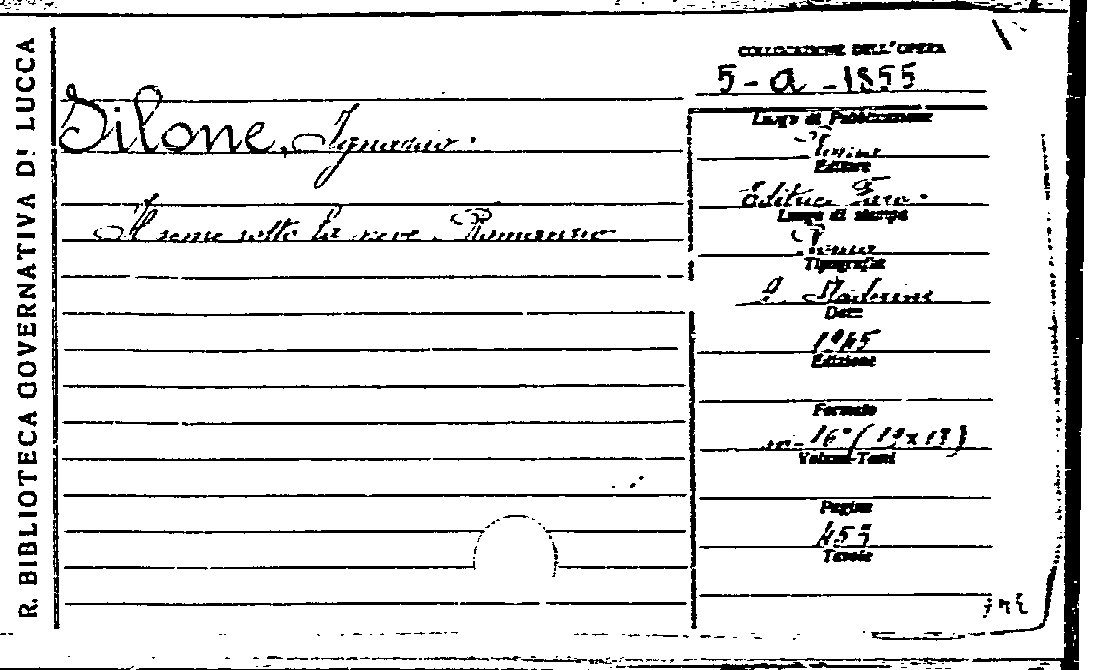 R. BIBLIOTECA GOVERNATIVA DI LUCCA
COLLOCAZIONE DELL'OPERA
5-a-1855
Silone, Ignazio.
Il seme sotto la neve. Romanzo
Luogo di Pubblicazione
Roma
Editore
Editrice Faro.
Luogo di stampa
Roma
Tipografia
Data
1945
Edizione
Formato
in-16° (19x13)
Volumi-Tomi
Pagine
455
Tavole